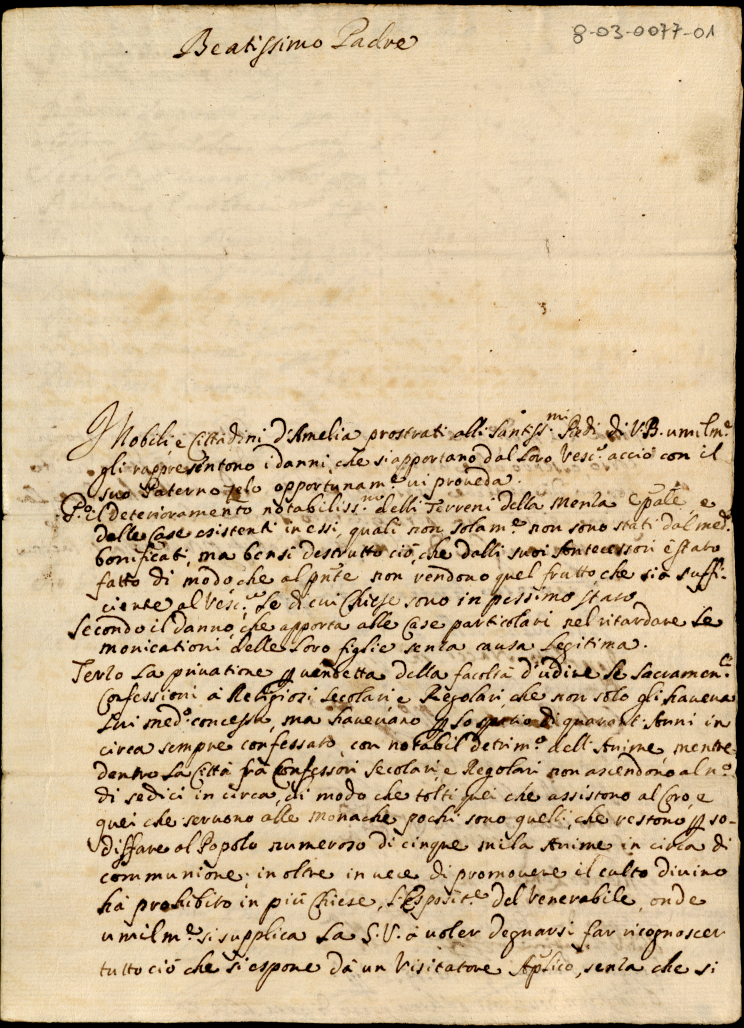 8-03-0077-01
Beatissimo Padre
I Nobili, e Cittadini d'Amelia prostrati alli Santiss.mi Piedi di V.B. umilm.e
gli rappresentono i danni, che si apportano dal Loro Vesc.o acciò con il
suo Paterno zelo opportunam.e vi proveda.
P.o il deterioramento notabiliss.mo delli Terreni della Mensa Epāle, e
delle Case esistenti in essi, quali non solam.e non sono stati dal med.o
bonificati, ma bensì destrutto ciò, che dalli suoi Antecessori è stato
fatto di modo, che al pñte non rendono quel frutto, che sia suffi-
ciente al Vesc.o, le di cui Chiese sono in pessimo stato
Secondo il danno, che apporta alle Case particolari nel ritardare le
monicationi delle Loro figlie senza causa Legitima.
Terzo La privatione p vendetta della facoltà d'udire le Sacramen.li
Confessioni à Religiosi Secolari, e Regolari che non solo gli haveva
Lui med.o concesse, ma havevano p lo spatio di quarant'Anni in
circa sempre confessato, con notabil detrim.o dell'Anime, mentre
dentro La Città frà Confessori Secolari, e Regolari non ascendono al n.o
di sedici in circa, di modo che tolti quei che assistono al Coro, e
quei che servono alle Monache pochi sono quelli, che restono p so-
disfare al Popolo numeroso di cinque mila Anime in circa di
communione; in oltre in vece di promovere il culto divino
hà prohibito in più Chiese, l'Esposit.e del Venerabile, onde
umilm.e si supplica La S.V. à voler degnarsi far ricognoscer
tutto ciò che si espone dà un Visitatore Aplico, senza che si